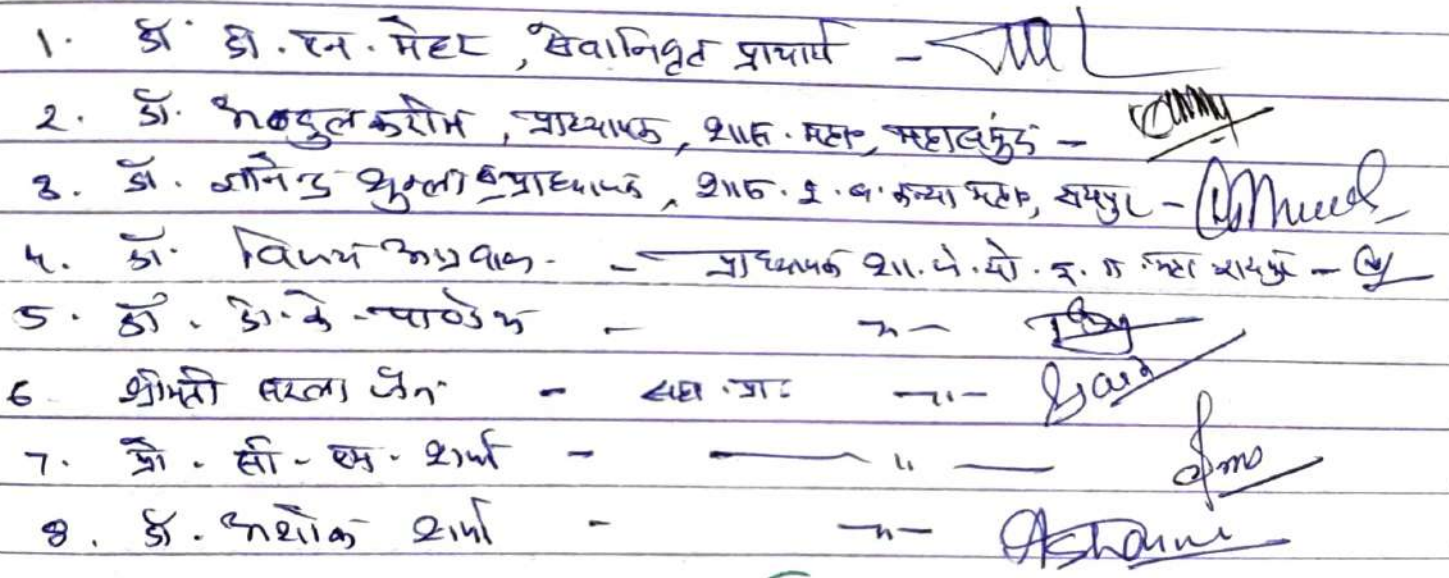 1. डॉ डी. एन. मेहर, सेवानिवृत प्राचार्य -
2. डॉ. अब्दुल करीम, प्राध्यापक, शास. महा, महासमुंद -
3. डॉ. शुक्ला प्राध्यापक, शास. कन्या महा, रायपुर -
4. डॉ. विजय अग्रवाल - - प्राध्यापक शा. जे. यो. छ. ग. महा रायपुर -
5. डॉ. डी. के - पाण्डेय - -"-
6 श्रीमती सरला जैन - सहा. प्रा. -"-
7. प्रो. सी - एम. शर्मा - - " -
8. डॉ. अशोक शर्मा - -"- ASharma